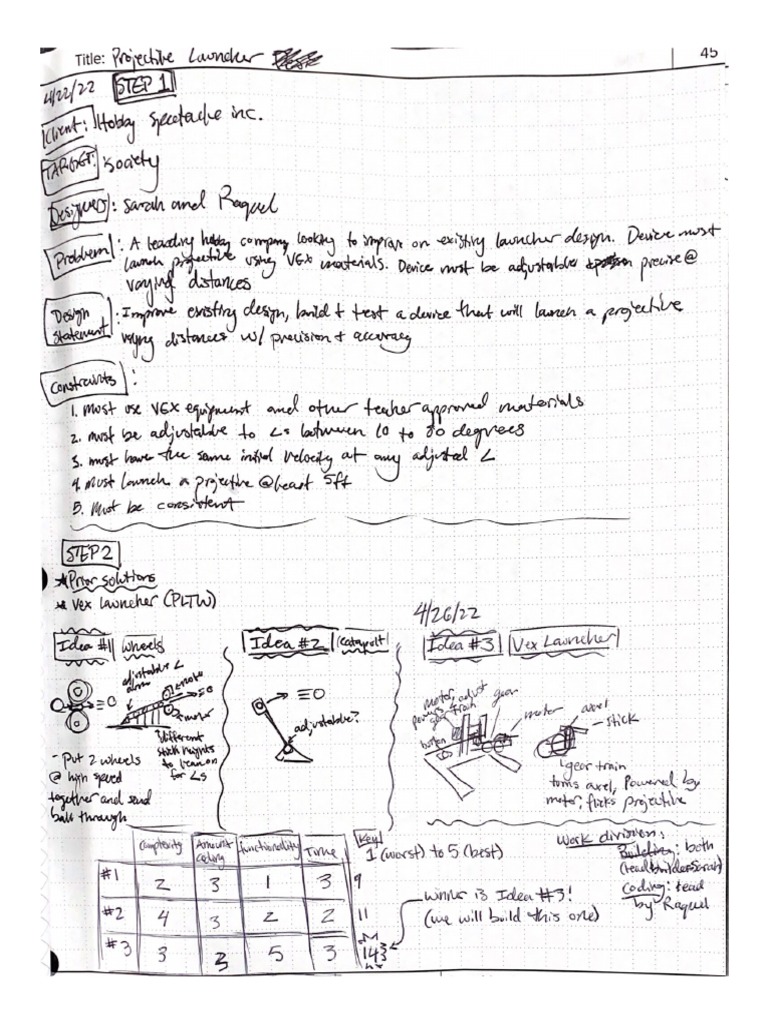 Title: Projective Launcher
45
4/22/22 STEP 1
Client: Hobby Spectache inc.
TARGET: Society
Designers: Sarah and Raquel
Problem: A leading hobby company looking to improve on existing launcher design. Device must
launch projective using VEX materials. Device must be adjustable precise @
varying distances
Design Statement: Improve existing design, build + test a device that will launch a projective
distances w/ precision + accuracy
Constraints:
1. Must use VEX equipment and other teacher approved materials
2. must be adjustable to ∠s between 10 to 80 degrees
3. must have the same initial velocity at any adjusted ∠
4. Must launch a projective @ least 5ft
5. Must be consistent
STEP 2
* Prior solutions
* Vex Launcher (PLTW)
4/26/22
Idea #1 wheels
Idea #2 (catapult)
Idea #3 Vex Launcher
adjustable ∠
motor
different
stick heights
to lean on
for ∠s
- Put 2 wheels
@ high speed
together and send
ball through
adjustable?
motor, adjust
gear train
gear
motor
button
axel
stick
gear train
turns axel, Powered by
motor, flicks projective
Complexity Amount coding functionality Time
#1 2 3 1 3 9
#2 4 3 2 2 11
#3 3 3 5 3 14
Key
1 (worst) to 5 (best)
winner is Idea #3!
(we will build this one)
Work division:
Building: both
(lead builder Sarah)
Coding: lead
by Raquel